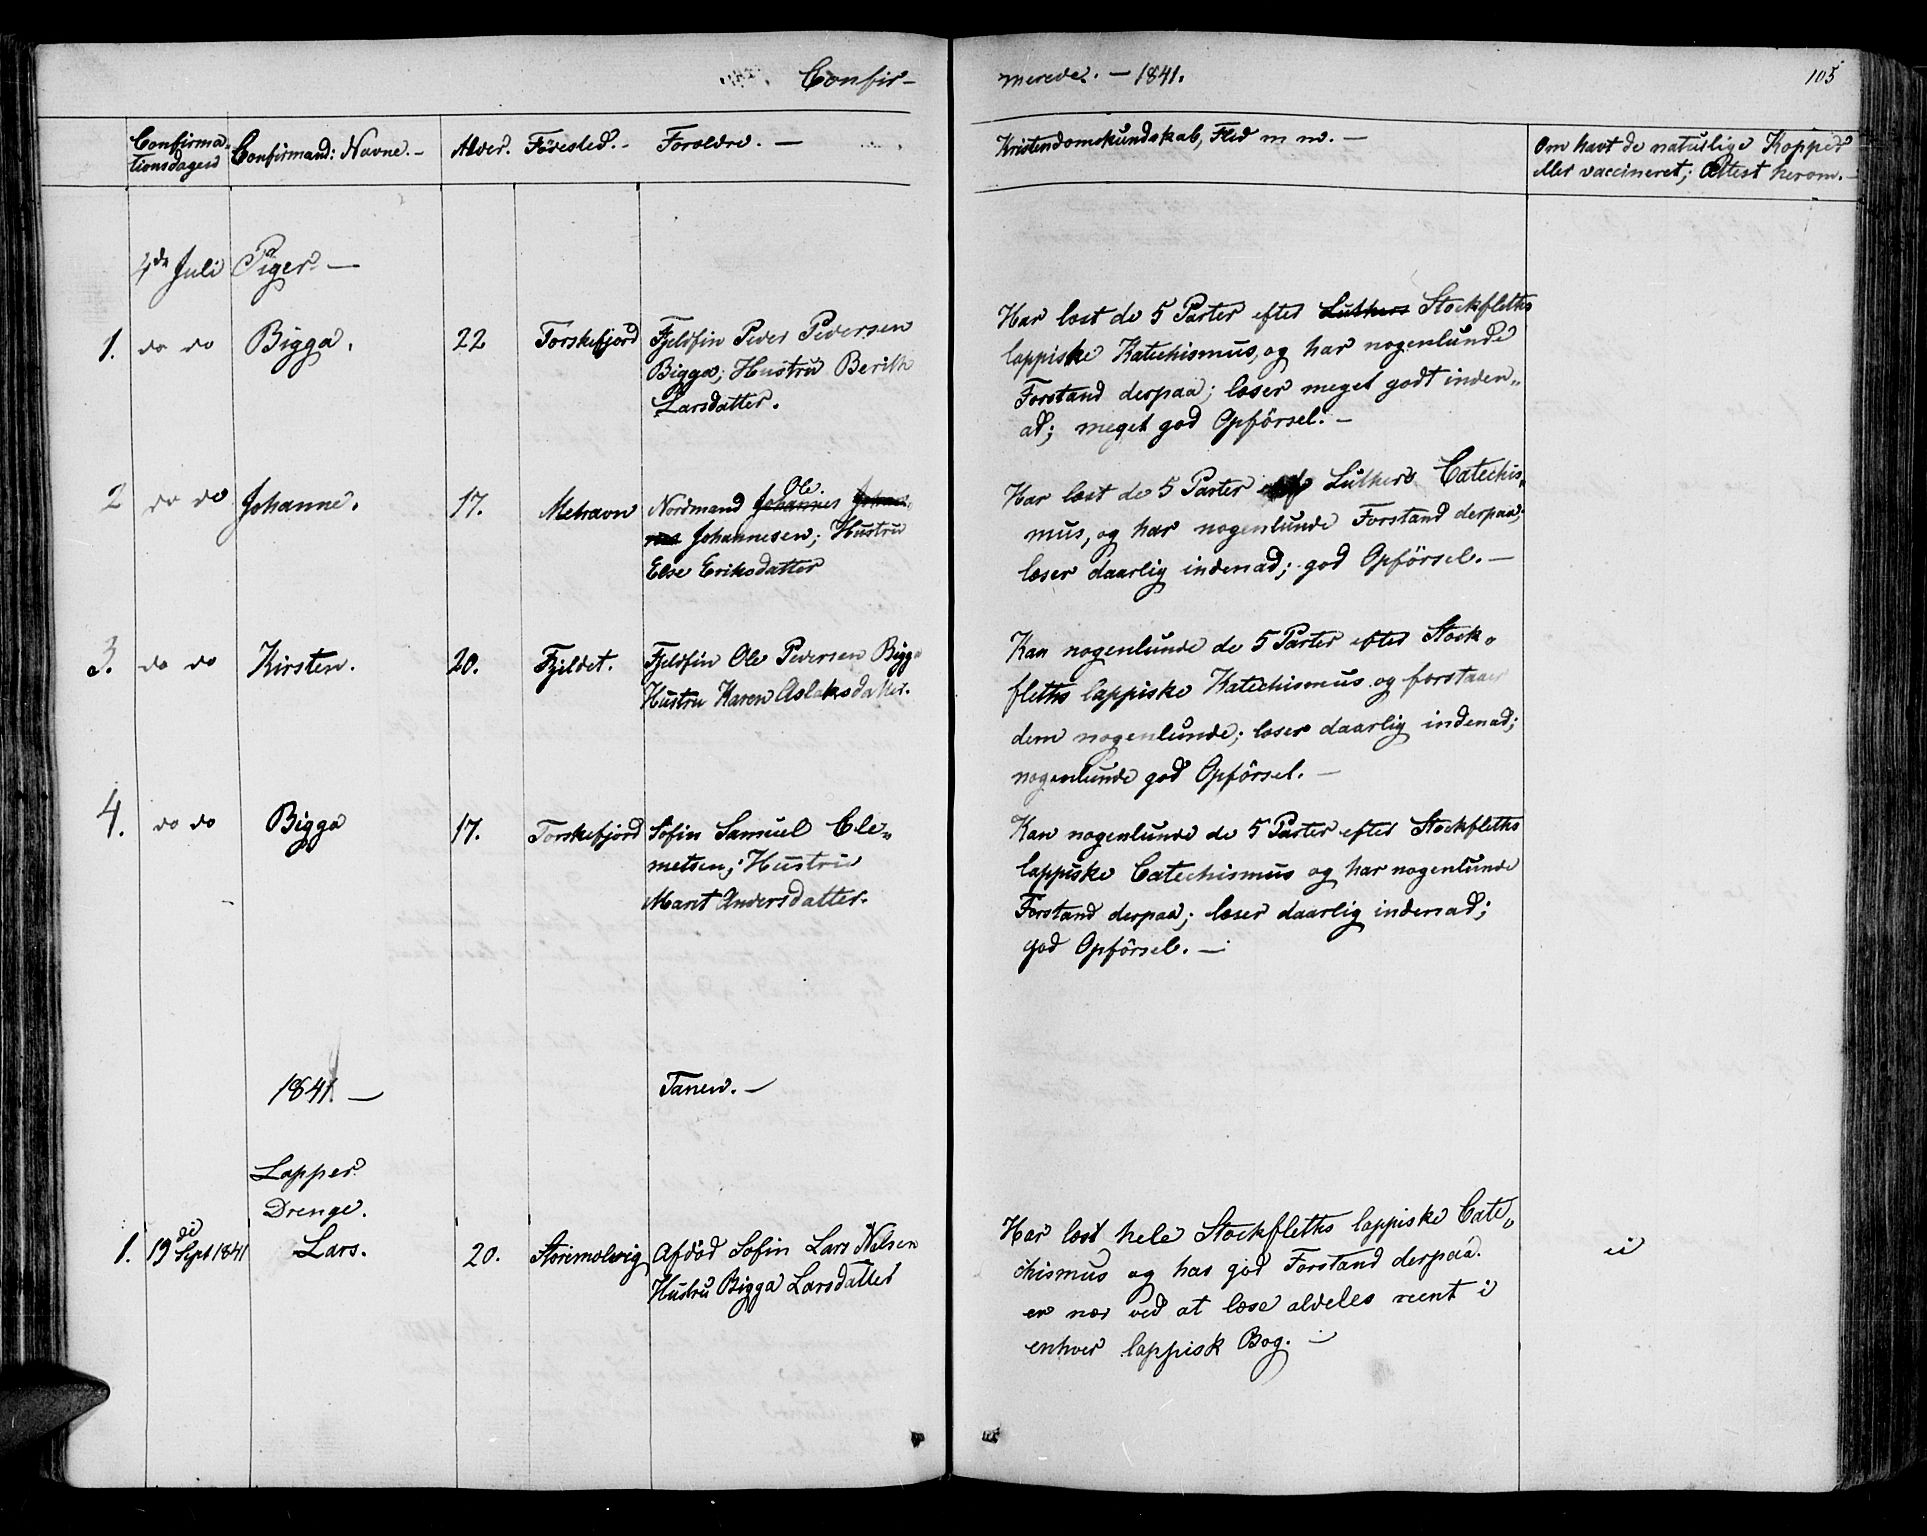 Confir-
merede. - 1841.
105
Confirma-
tionsdagen
Confirmand: Navne. -
Alder.
Födested. -
Forældre. -
Kristendomskundskab, Flid m m. -
Om havt de naturlige Kopper
eller vaccineret; Attest herom. -
4de Juli Piger. -
1. do do Bigga. 22 Torskefjord Fjeldfin Peder Pedersen
Bigga; Hustru Berith
Larsdatter.
Har læst de 5 Parter efter Luthers Stockfleths
lappiske Katechismus, og har nogenlunde
Forstand derpaa; læser meget godt inden„
ad; meget god Opförsel. -
2 do do Johanne. 17. Mehavn Nordmand Johannes Ole
Johannesen; Hustru
Else Eriksdatter
Har læst de 5 Parter Luthers Catechis„
mus, og har nogenlunde Forstand derpaa;
læser daarlig indenad; god Opförsel. -
3. do do Kirsten. 20. Fjeldet. Fjeldfin Ole Pedersen Bigga
Hustru Karen Aslaksdatter.
Kan nogenlunde de 5 Parter efter Stock„
fleths lappiske Katechismus og forstaaer
dem nogenlunde; læser daarlig indenad;
nogenlunde god Opförsel. -
4. do do Bigga 17. Torskefjord Söfin Samuel Cle„
metsen; Hustru
Marit Andersdatter.
Kan nogenlunde de 5 Parter efter Stockfleths
lappiske Catechismus og har nogenlunde
Forstand derpaa; læser daarlig indenad;
god Opförsel. -
1841. - Tanen. -
Lapper
Drenge.
1. 19de Sept 1841 Lars. 20. Storemolvig Afdöd Söfin Lars Nilsen
Hustru Bigga Larsdatter
Har læst hele Stockfleths lappiske Cate„
chismus og har god Forstand derpaa.
er nær ved at læse aldeles reent i
enhver lappisk Bog. -